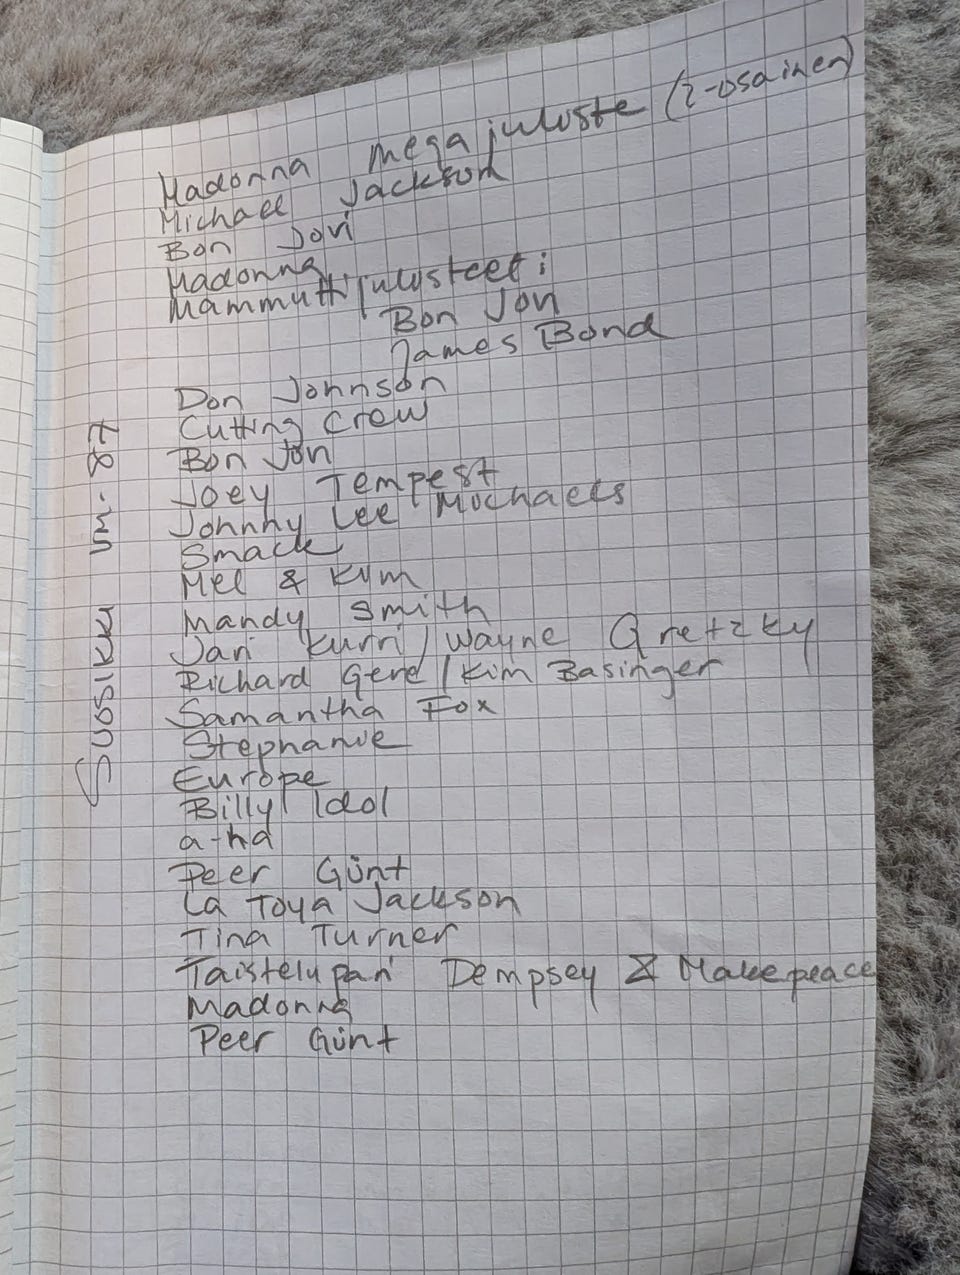 Madonna megajuliste (2-osainen)
Michael Jackson
Bon Jovi
Madonna
Mammuttijulisteet:
Bon Jovi
James Bond
Don Johnson
Cutting Crew
Bon Jovi
Joey Tempest
Johnny Lee Michaels
Smack
Mel & Kim
Mandy Smith
Jari Kurri/Wayne Gretzky
Richard Gere/Kim Basinger
Samantha Fox
Stephanie
Europe
Billy Idol
a-ha
Peer Günt
La Toya Jackson
Tina Turner
Taistelupari Dempsey & Makepeace
Madonna
Peer Günt
Suosikki vm. 87